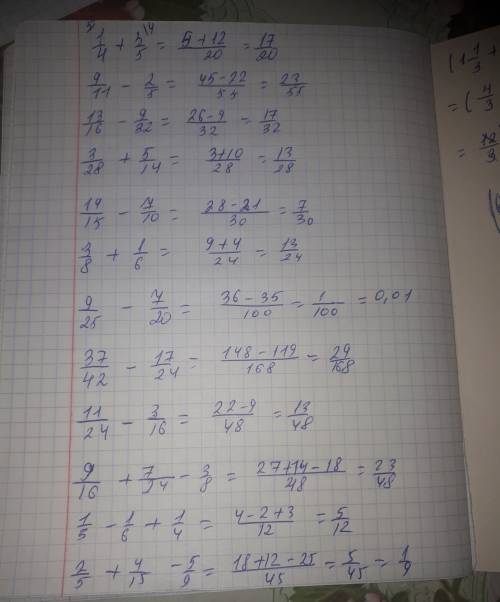 1/4 + 3/5 = 5+12/20 = 17/20
9/11 - 2/5 = 45-22/55 = 23/55
13/16 - 9/32 = 26-9/32 = 17/32
3/28 + 5/14 = 3+10/28 = 13/28
14/15 - 7/10 = 28-21/30 = 7/30
3/8 + 1/6 = 9+4/24 = 13/24
9/25 - 7/20 = 36-35/100 = 1/100 = 0,01
37/42 - 17/24 = 148-119/168 = 29/168
11/24 - 3/16 = 22-9/48 = 13/48
9/16 + 7/24 - 3/8 = 27+14-18/48 = 23/48
1/5 - 1/6 + 1/4 = 4-2+3/12 = 5/12
2/5 + 4/15 - 5/9 = 18+12-25/45 = 5/45 = 1/9
(1 1/3 +
= ( 4/3